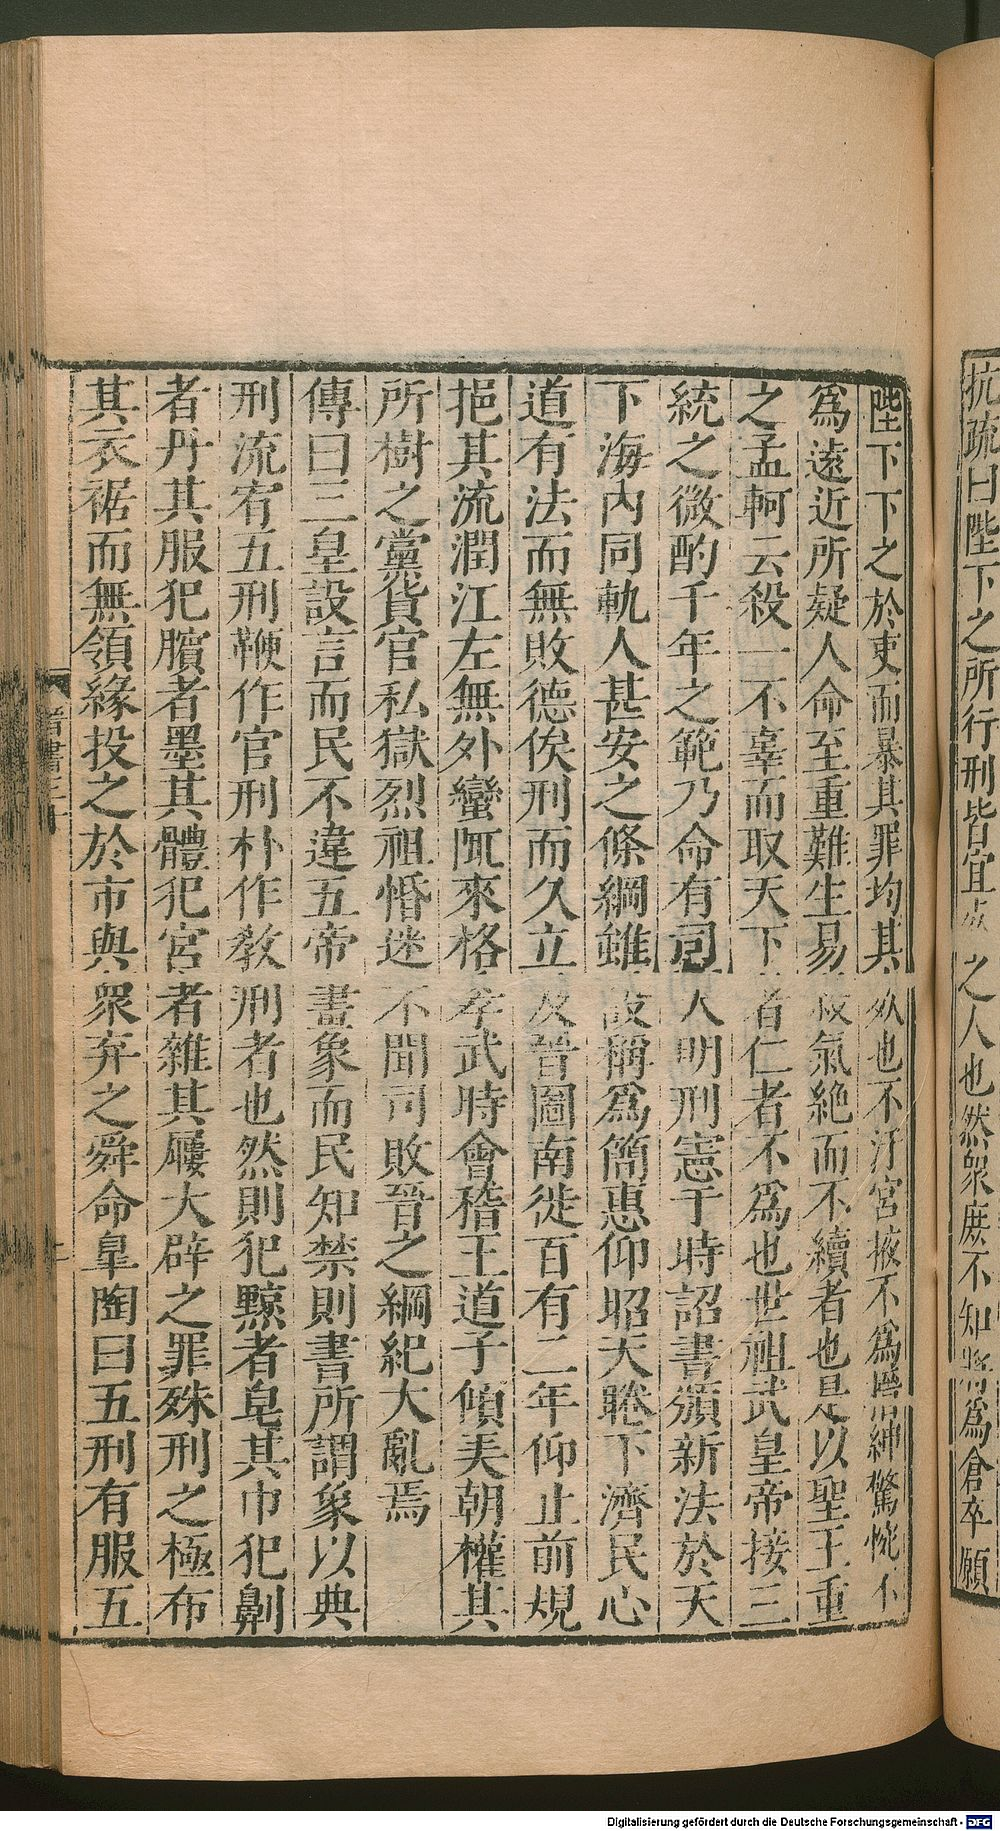 抗疏曰陛下之所行刑皆宜 之人也然衆庶不知將爲倉卒願
陛下下之於吏而暴其罪均其 也不汙宮掖不爲 紳驚惋不
爲遠近所疑人命至重難生易 氣絶而不續者也是以聖王重
之孟軻云殺一不辜而取天下 者不爲也世祖武皇帝接三
統之微酌千年之範乃命有司 大明刑憲于時詔書頒新法於天
下海内同軌人甚安之條綱雖 設稱爲簡惠仰昭天聽下濟民心
道有法而無敗德俟刑而久立 及晉圖南徙百有二年仰止前規
挹其流潤江左無外蠻陬來格 孝武時會稽王道子傾美朝權其
所樹之黨貨官私獄烈祖惛迷 不聞司敗晉之綱紀大亂焉
傳曰三皇設言而民不違五帝 畫象而民知禁則書所謂象以典
刑流宥五刑鞭作官刑朴作敎 刑者也然則犯黥者皂其巾犯劓
者丹其服犯臏者墨其體犯宮 者雜其屨大辟之罪殊刑之極布
其衣裾而無領緣投之於市與 衆弃之舜命皐陶曰五刑有服五
晉書三十
Digitalisierung gefördert durch die Deutsche Forschungsgemeinschaft - DFG